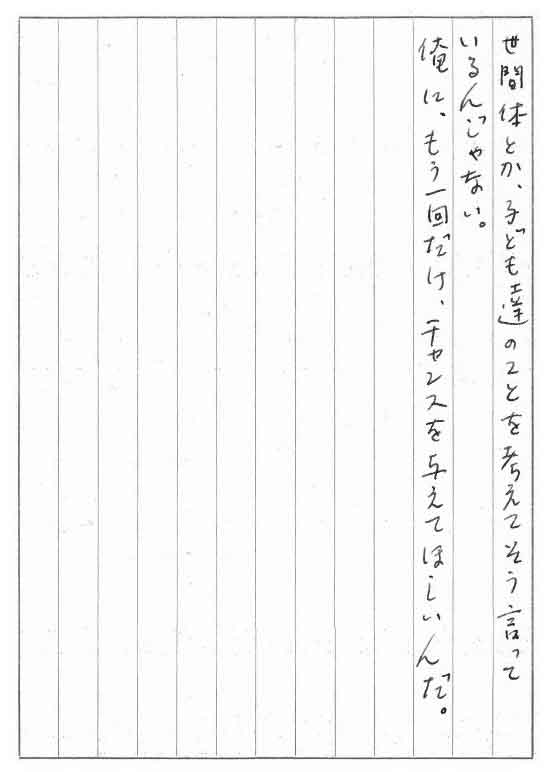 世間体とか、子ども達のことを考えてそう言って
いるんじゃない。
俺に、もう一回だけ、チャンスを与えてほしいんだ。